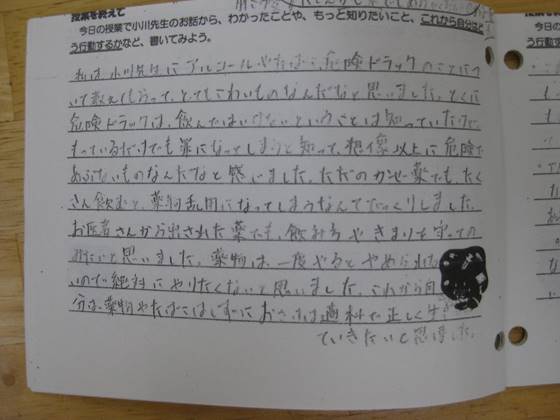 授業を終えて
今日の授業で小川先生のお話から、わかったことや、もっと知りたいこと、これから自分はど
う行動するかなど、書いてみよう。
私は小川先生にアルコールやたばこ、危険ドラックのことにつ
いて教えてもらって、とてもこわいものなんだなと思いました。とくに
危険ドラックは、飲んではいけないということは知っていたけど、
もっているだけでも罪になってしまうと知って、想像以上に危険で
あぶないものなんだなと感じました。ただのカゼ薬でも、たく
さん飲むと、薬物乱用になってしまうなんてびっくりしました。
お医者さんから出された薬でも、飲み方やきまりを守っての
みたいと思いました。薬物は、一度やるとやめられな
いので絶対にやりたくないと思いました。これから自
分は、薬物やたばこはしずに お 適 正しく生き
ていきたいと思いました。